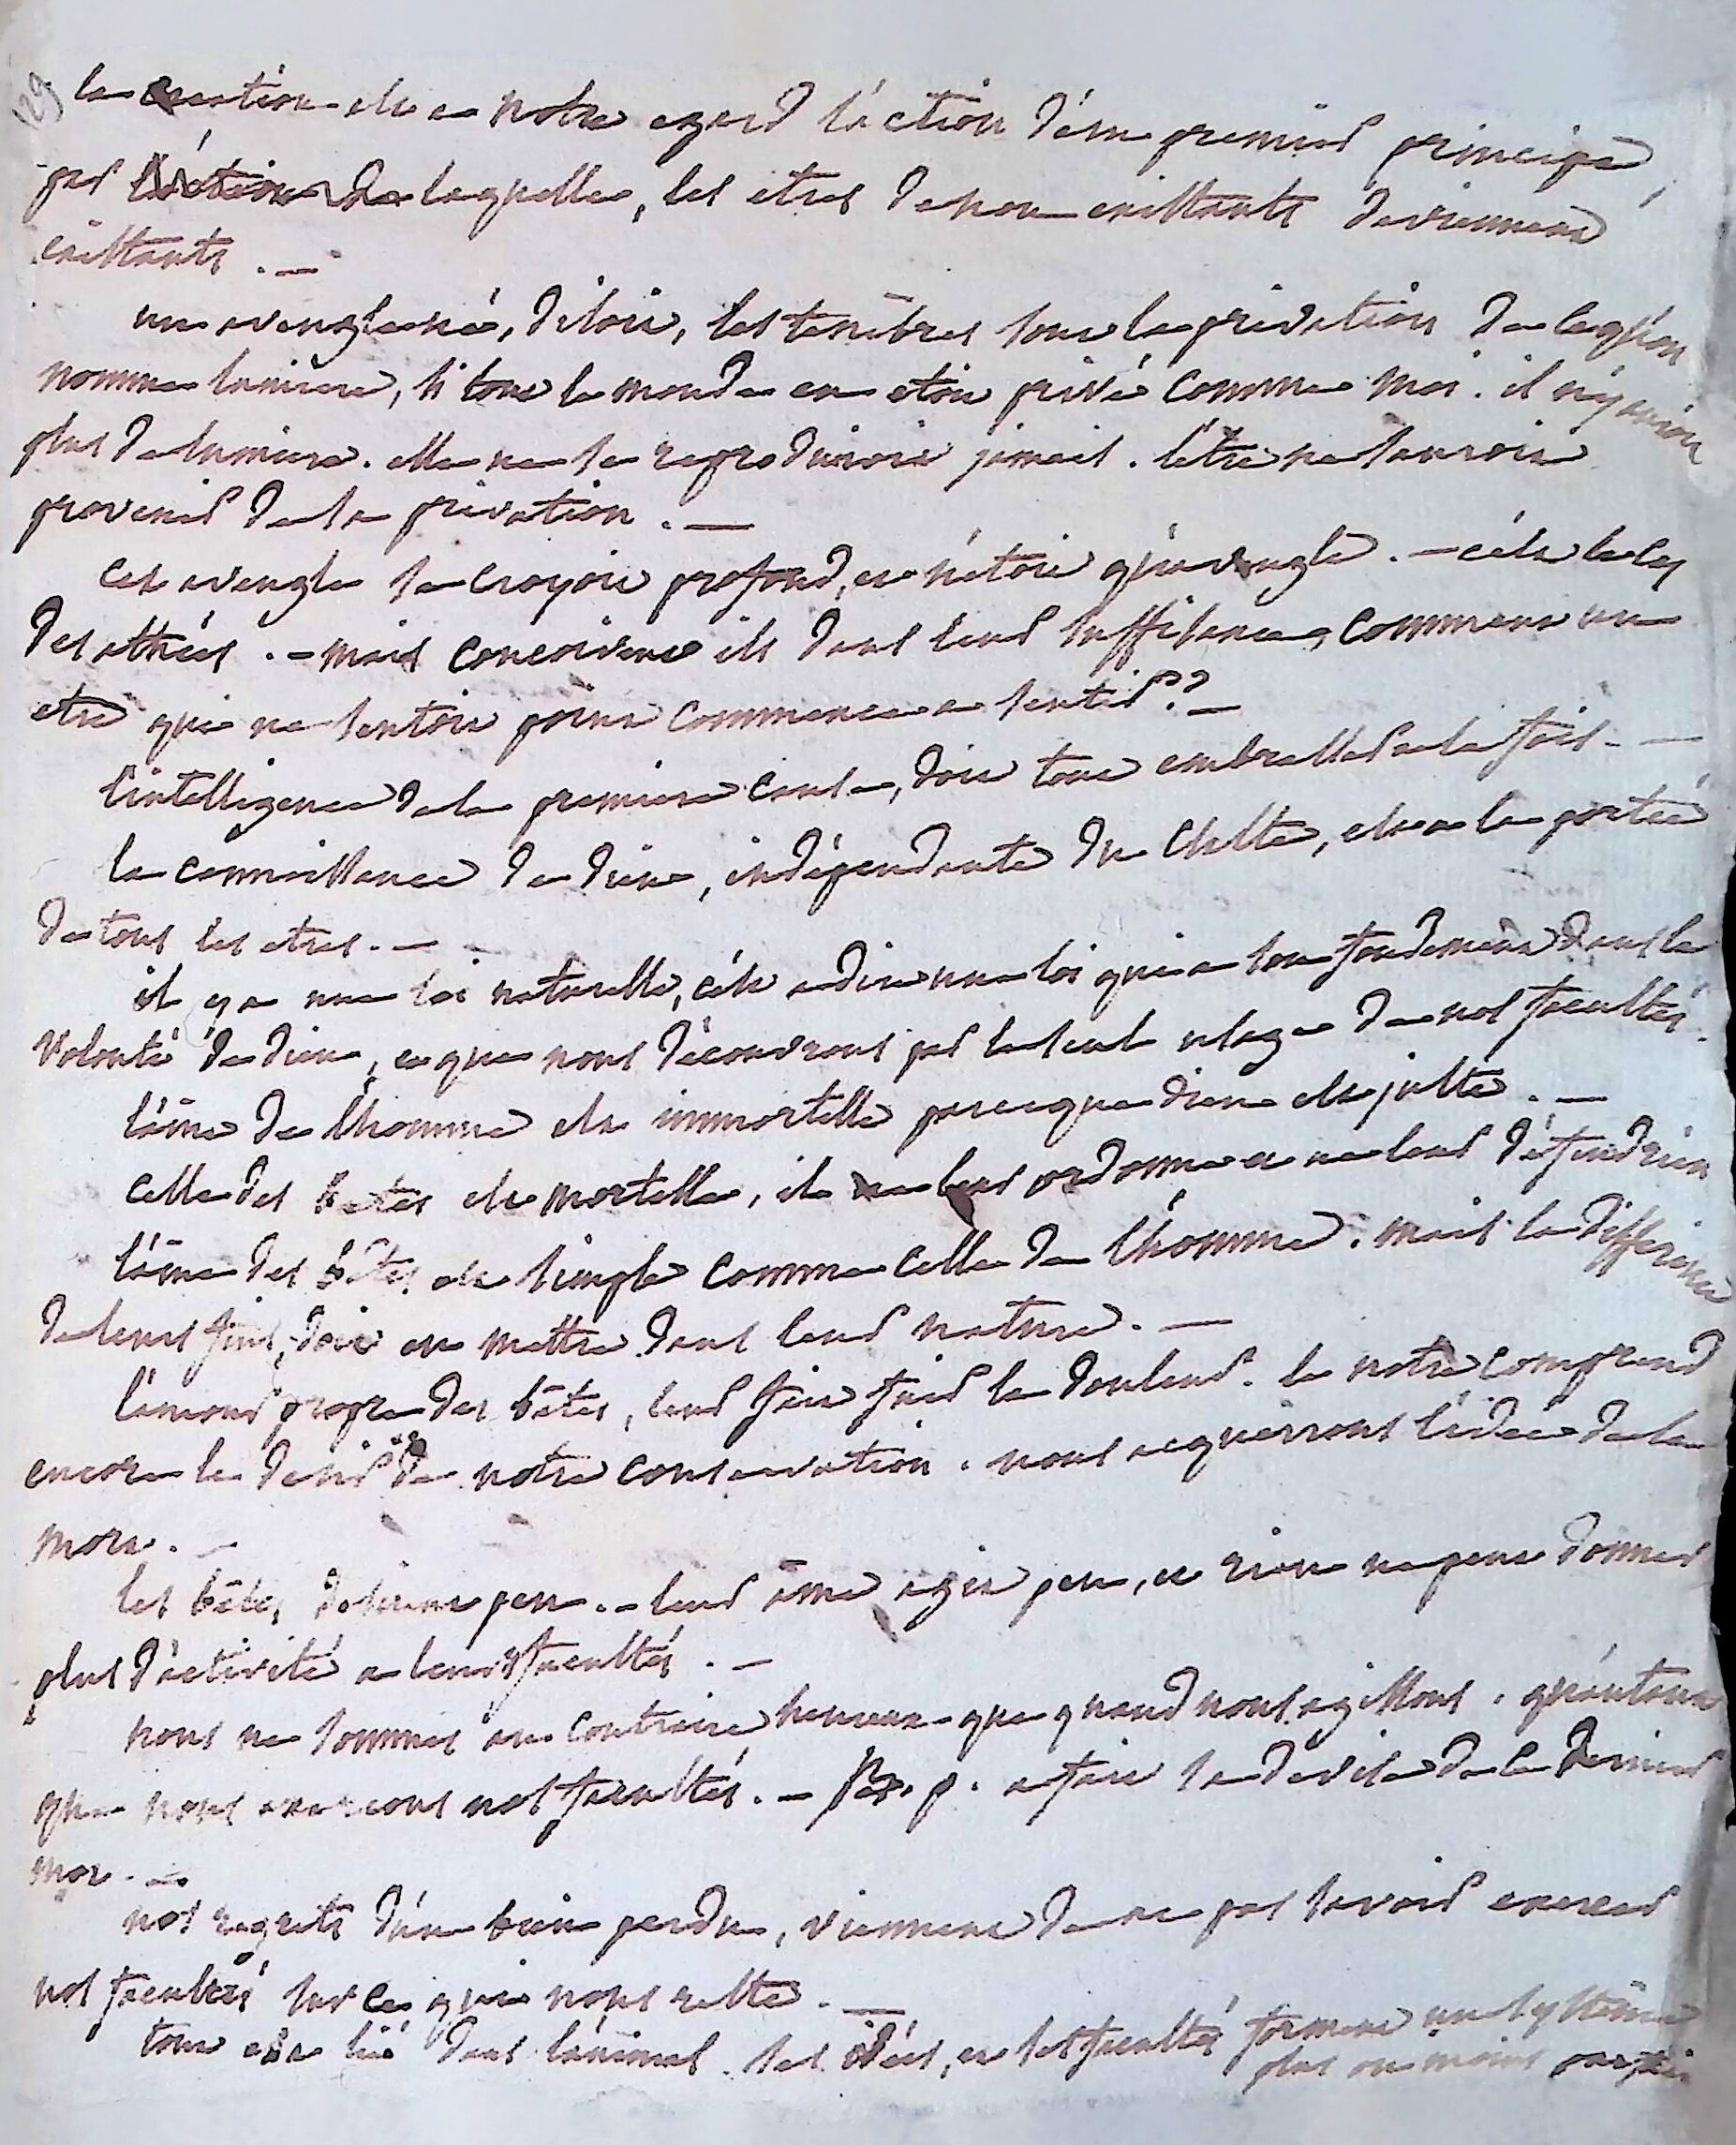 129
la creation est a notre egard l'action d'un premier principe,
par l'action de laquelle, les etres de non existants deviennent
existants. —
un aveugle né, disoit, les tenêbres sont la privation de ce qu'on
nomme lumiere, si tout le monde en etoit privé comme moi. il n'y auroit
plus de lumiere. elle ne se reproduiroit jamais. l'être ne sauroit
provenir de la privation. —
cet aveugle se croyoit profond, et n'étoit qu'aveugle. — c'est le cas
des athées. — mais concoivent ils dans leur suffisance, comment un
etre qui ne sentoit point commence a sentir?? —
l'intelligence de la premiere cause, doit tout embrasser a la fois. —
la connoissance de dieu, indépendante du culte, est a la portée
de tous les etres. —
il y a une loi naturelle, c'est a dire une loi qui a son fondement dans la
volonté de dieu, et que nous découvrons par le seul usage de nos facultés.
l'âme de l'homme est immortelle parceque dieu est juste. —
celle des betes est mortelle, il ne leur ordonne et ne leur défend rien
l'âme des bêtes est simple comme celle de l'homme. mais la difference
de leurs fins, doit en mettre dans leur nature. —
l'amour propre des bêtes, leur fait fuir la douleur. le notre comprend
encore le desir de notre conservation. nous acquerrons l'idée de la
mort. —
les bêtes, desirent peu. — leur âme agit peu, et rien ne peut donner
plus d'activité a leurs facultés. —
nous ne sommes au contraire heureux que quand nous agissons. qu'autant
que nous exercons nos facultés. — p. a fait sa devise de ce dernier
mot. —
nos regrets d'un bien perdu, viennent de ne pas savoir exercer
nos facultés sur ce qui nous reste. —
tout est lié dans l'animal. ses idées, et ses facultés forment un systême
plus ou moins parfait